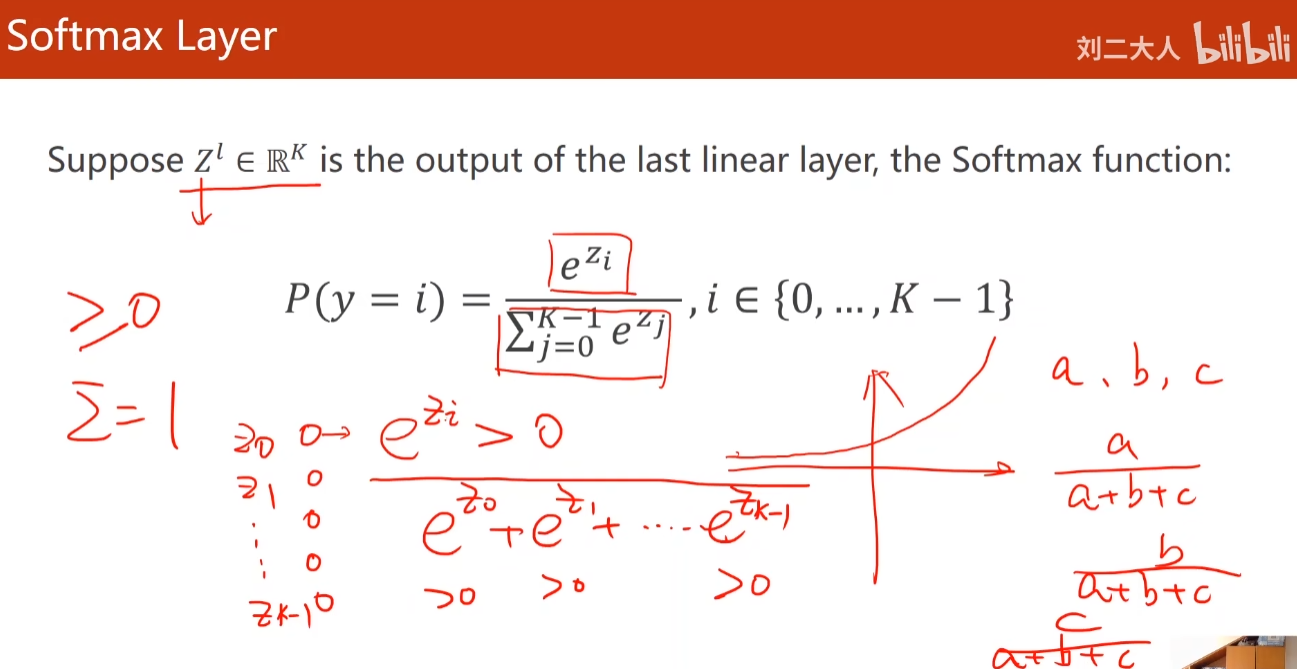 Softmax Layer
刘二大人 bilibili
Suppose Z^l ∈ ℝ^K is the output of the last linear layer, the Softmax function:
P(y = i) = e^{z_i} / ∑_{j=0}^{K−1} e^{z_j}, i ∈ {0, …, K − 1}
≥0
Σ=1
z0 0→
z1 0
⋮ 0
⋮ 0
zk-1 0
e^{zi} > 0
e^{z0} + e^{z1} + ····· e^{zk-1}
>0 >0 >0
a、b, c
a / a+b+c
b / a+b+c
c / a+b+c